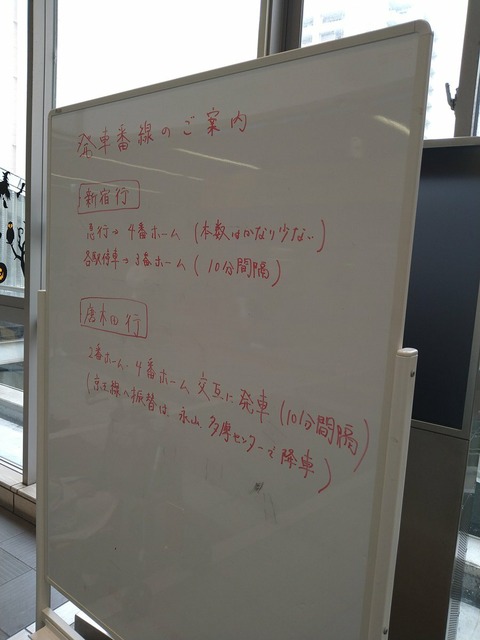 発車番線のご案内
新宿行
急行→4番ホーム (本数はかなり少ない)
各駅停車→3番ホーム (10分間隔)
唐木田行
2番ホーム・4番ホーム 交互に発車 (10分間隔)
(京王線へ振替は、永山、多摩センターで降車)